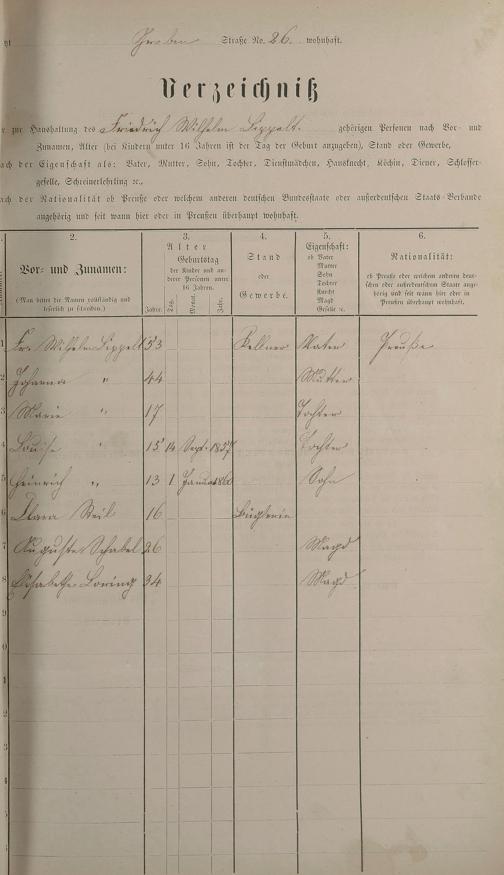 Graben Straße No. 26. wohnhaft.
Verzeichniß
zur Haushaltung des Friedrich Wilhelm Lippelt. gehörigen Personen nach Vor- und
Zunamen, Alter (bei Kindern unter 16 Jahren ist der Tag der Geburt anzugeben), Stand oder Gewerbe,
nach der Eigenschaft als: Vater, Mutter, Sohn, Tochter, Dienstmädchen, Hausknecht, Köchin, Diener, Schlosser-
geselle, Schreinerlehrling ꝛc.,
nach der Nationalität ob Preuße oder welchem anderen deutschen Bundesstaate oder außerdeutschen Staats-Verbande
angehörig und seit wann hier oder in Preußen überhaupt wohnhaft.
2. 3. 4. 5. 6.
Vor- und Zunamen:
(Man bittet die Namen vollständig und
leserlich zu schreiben.)
Alter
Geburtstag
der Kinder und an-
derer Personen unter
16 Jahren.
Jahre. Tag. Monat. Jahr.
Stand
oder
Gewerbe.
Eigenschaft:
ob Vater
Mutter
Sohn
Tochter
Knecht
Magd
Geselle ꝛc.
Nationalität:
ob Preuße oder welchem anderen deut-
schen oder außerdeutschen Staate ange-
hörig und seit wann hier oder in
Preußen überhaupt wohnhaft.
1 Fr. Wilhelm Lippelt 53 Kellner Vater Preuße
2 Johanna " 44 Mutter
3 Marie " 17 Tochter
4 Louise " 15 14 Sept. 1857 Tochter
5 Heinrich " 13 1 Januar 1860 Sohn
6 Clara Keil 16 Büglerin
7 Auguste Schabel 26 Magd
8 Elisabethe Loring 24 Magd
9
0
1
2
3
4
5
6